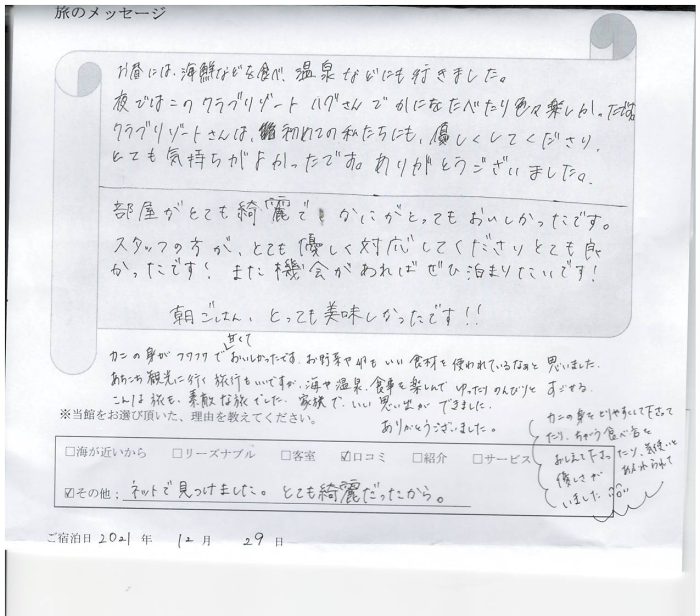 旅のメッセージ
お昼には、海鮮などを食べ、温泉などにも行きました。
夜ではこのクラブリゾートハグさんでかになたべたり色々楽しかったです。
クラブリゾートさんは、初めての私たちにも、優しくしてくださり、
とても気持ちがよかったです。ありがとうございました。
部屋がとても綺麗で、かにがとってもおいしかったです。
スタッフの方が、とても優しく対応してくださりとても良
かったです！また機会があればぜひ泊まりたいです！
朝ごはん、とっても美味しかったです！！
カニの身がフワフワで甘くておいしかったです。お野菜や卵もいい食材を使われているなぁと思いました。
あちこち観光に行く旅行もいいですが、海や温泉、食事を楽しんでゆったりのんびりとすごせる、
こんな旅も、素敵な旅でした。家族で、いい思い出ができました。
ありがとうございました。
カニの身をとりやすくして下さって
たり、ちがう食べ方を
おしえて下さったり、気使いと
優しさがあふれられて
いました
※当館をお選び頂いた、理由を教えてください。
□海が近いから □リーズナブル □客室 ☑口コミ □紹介 □サービス
☑その他：ネットで見つけました。とても綺麗だったから。
ご宿泊日 2021年 12月 29日